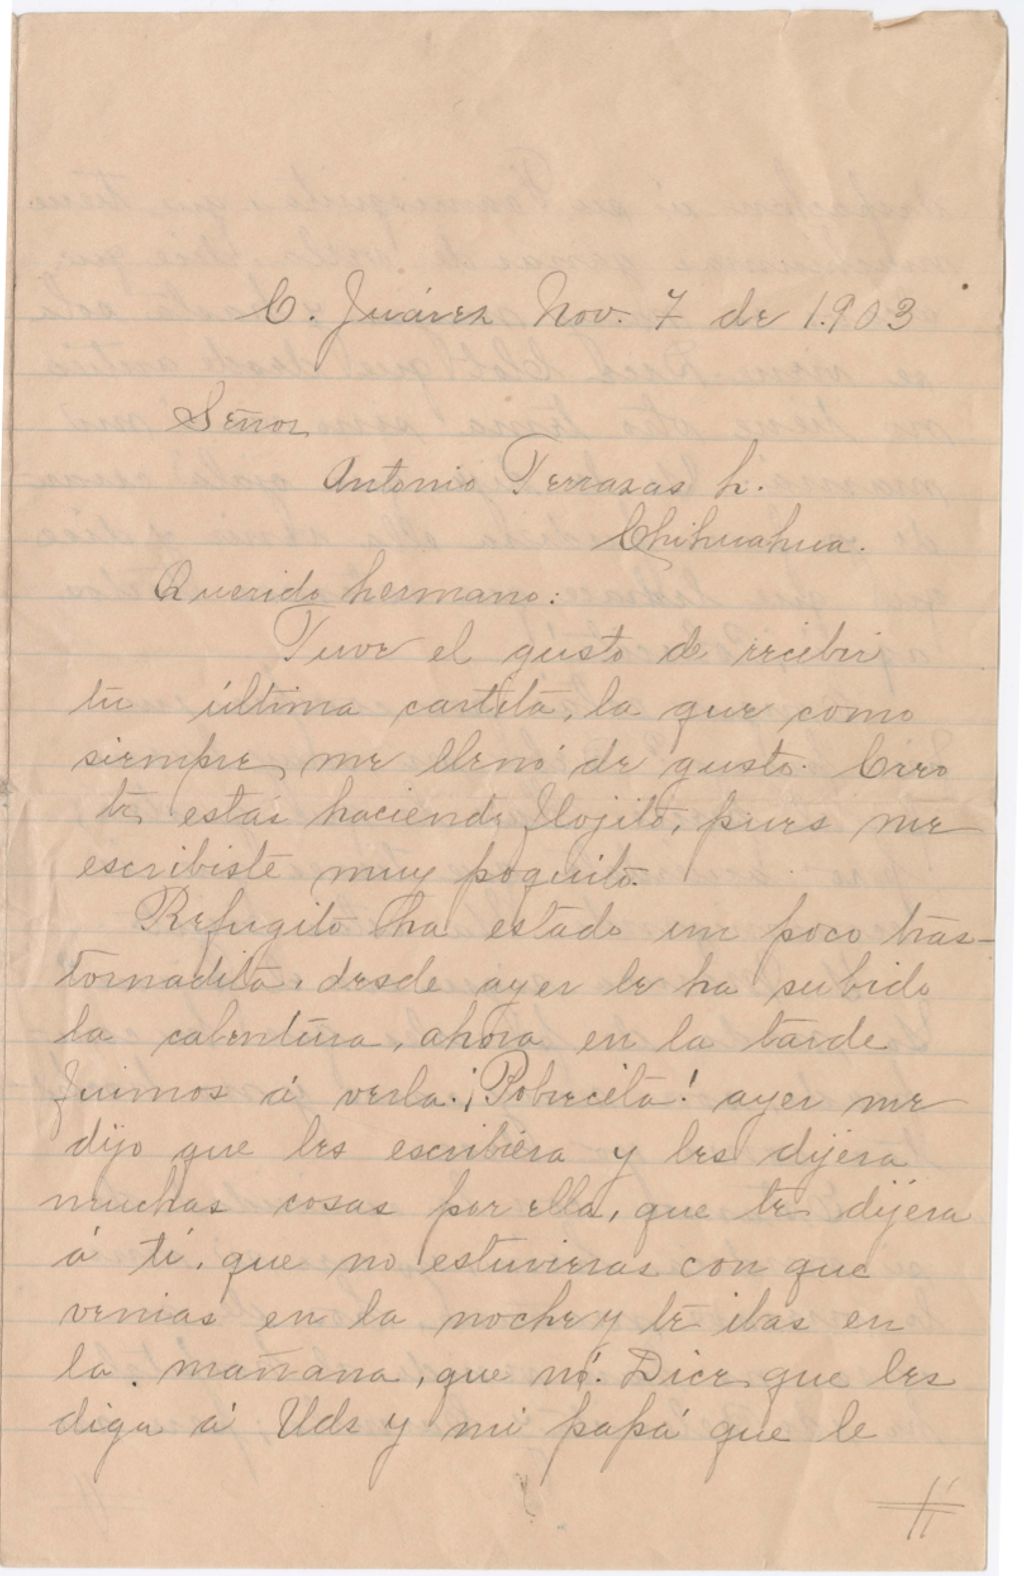 C. Juárez Nov. 7 de 1.903
Señor
Antonio Terrazas h.
Chihuahua.
Querido hermano:
Tuve el gusto de recibir
tu última cartita, la que como
siempre me llenó de gusto. Creo
te estás haciendo flojito, pues me
escribiste muy poquito.
Refugito ha estado un poco tras-
tornadita, desde ayer le ha subido
la calentura, ahora en la tarde
fuimos á verla. ¡Pobrecita! ayer me
dijo que les escribiera y les dijera
muchas cosas por ella, que te dijera
á tí, que no estuvieras con que
venias en la noche y te ibas en
la mañana, que nó. Dice que les
diga á Uds y mi papá que le